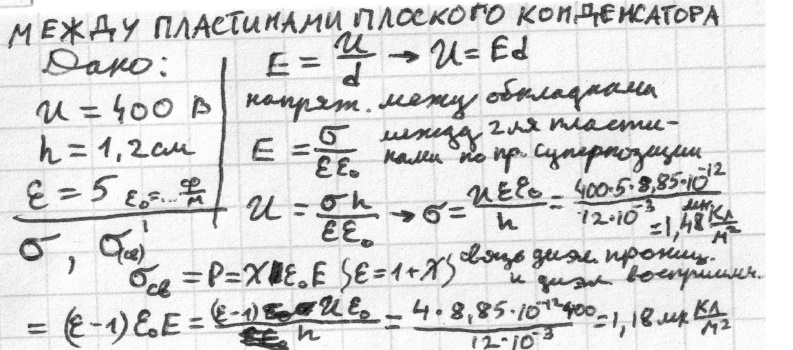 МЕЖДУ ПЛАСТИНАМИ ПЛОСКОГО КОНДЕНСАТОРА
Дано: E = U/d → U = Ed
U = 400 В напряж. между обкладками
h = 1,2 см E = σ/εε₀ между 2-мя пластинами по пр. суперпозиции
ε = 5 ε₀=... Ф/м U = σh/εε₀ → σ = Uεε₀/h = 400·5·8,85·10⁻¹²/12·10⁻³ = 1,48 мк Кл/м²
σ, σ(св)
σсв = P = χε₀E {ε = 1 + χ} связь диэл. прониц. и диэл. восприимч.
= (ε-1)ε₀E = (ε-1)Uε₀/h = 4·8,85·10⁻¹²·400/12·10⁻³ = 1,18 мк Кл/м²